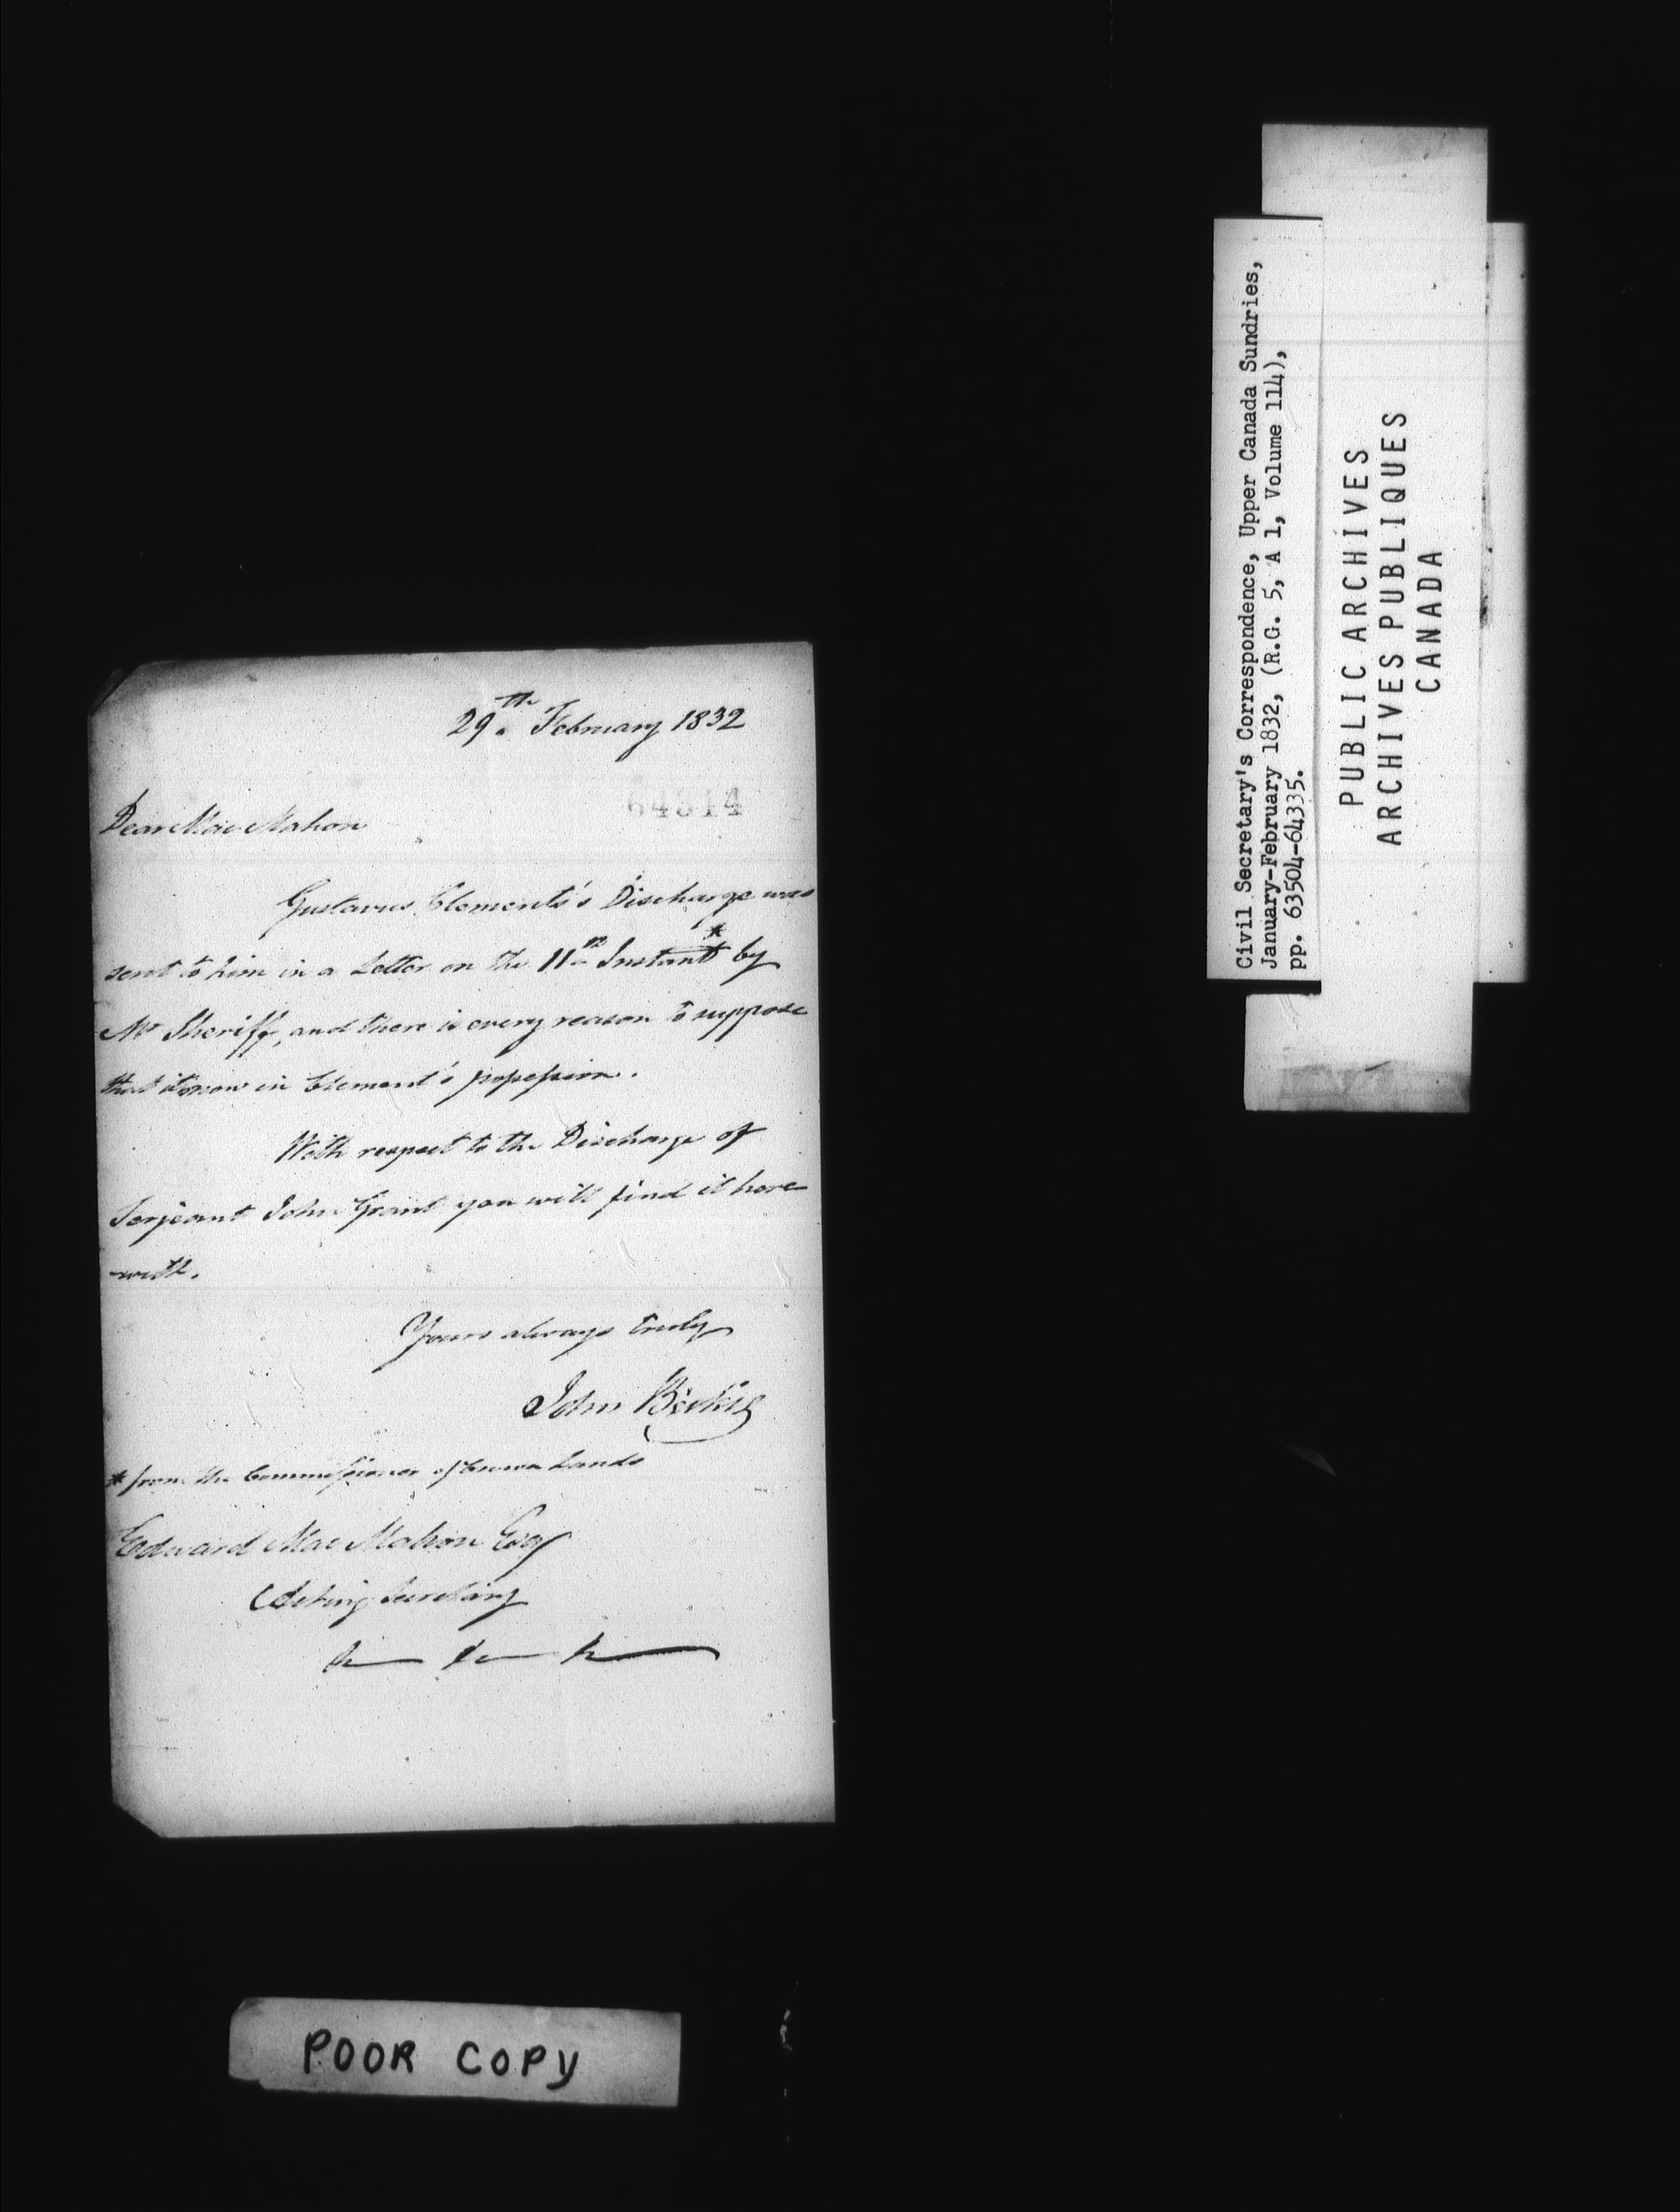 29th February 1832
64314
Dear Mac Mahon
Gustavus Clement's Discharge was
sent to him in a Letter on the 11th Instant * by
Mr Sheriff, and there is every reason to suppose
that it is now in Clement's possession.
With respect to the Discharge of
Serjeant John Grant you will find it here
-with.
Yours always truly
John Beikie
* from the Commissioner of Crown Lands
Edward Mac Mahon Esqr
Acting Secretary
POOR COPY
Civil Secretary's Correspondence, Upper Canada Sundries,
January-February 1832, (R.G. 5, A 1, Volume 114),
pp. 63504-64335.
PUBLIC ARCHIVES
ARCHIVES PUBLIQUES
CANADA